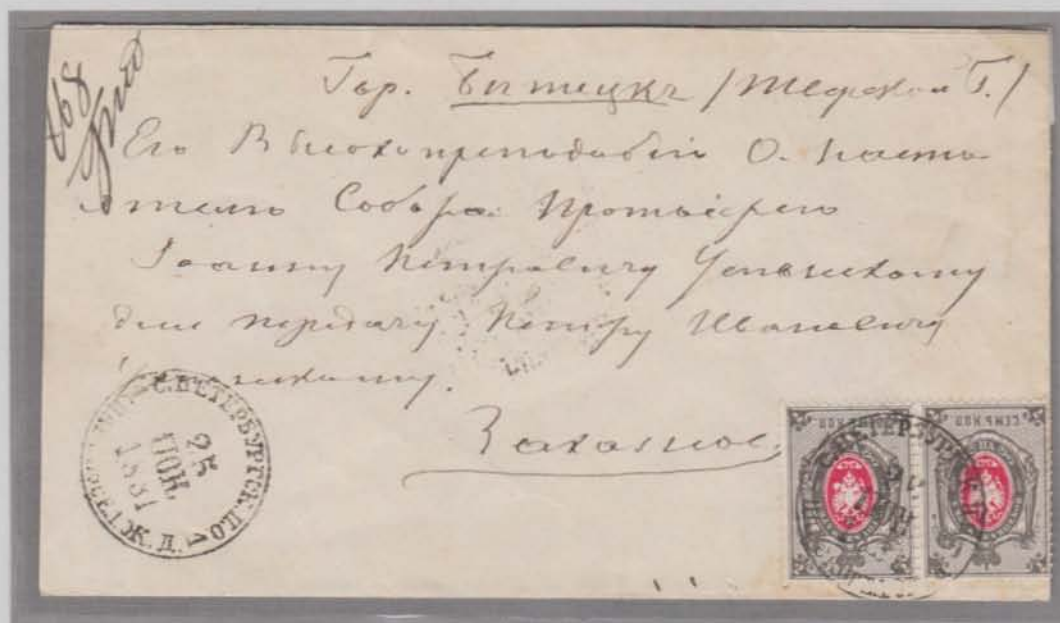 168
Гор. Бѣжецкъ /Тверской Г./
Его Высокопреподобію О. Насто
ятелю Собора Протоіерею
Іоанну Петровичу
для передачи Петру Ивановичу
Заказное
С.ПЕТЕРБУРГСК. П.О.
25
ІЮН.
1881
Ж.Д.
СЕМЬ КОП